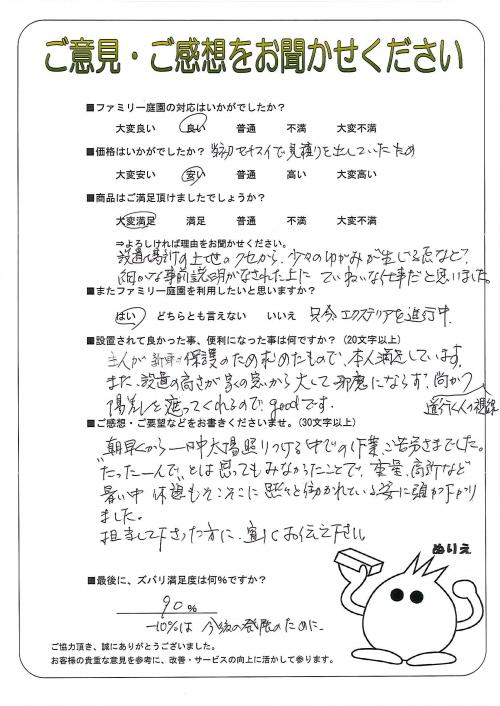 ご意見・ご感想をお聞かせください
■ファミリー庭園の対応はいかがでしたか？
大変良い 良い 普通 不満 大変不満
■価格はいかがでしたか？ 当初セキスイで見積りを出していたため
大変安い 安い 普通 高い 大変高い
■商品はご満足頂けましたでしょうか？
大変満足 満足 普通 不満 大変不満
⇒よろしければ理由をお聞かせください。
設置場所の土地のクセから、少々のゆがみが生じる点など、
細かな事前説明がなされた上に ていねいな仕事だと思いました。
■またファミリー庭園を利用したいと思いますか？
はい どちらとも言えない いいえ 只今エクステリアを進行中
■設置されて良かった事、便利になった事は何ですか？（20文字以上）
主人が 新車の保護のため求めたもので、本人満足しています。
また、設置の高さが家の窓から大して邪魔にならず、尚かつ
陽差しを遮ってくれるので goodです。
道行く人の視線
■ご感想・ご要望などをお書きくださいませ。（30文字以上）
朝早くから一日中太陽照りつける中での作業、ご苦労さまでした。
"たった一人で"とは思ってもみなかったことで、重量、高所など
暑い中 休憩もそこそこに 黙々と働かれている姿に頭が下がり
ました。
担当して下さった方に、宜しくお伝え下さい。
ぬりえ
■最後に、ズバリ満足度は何％ですか？
90 ％
-10%は 今後の発展のために
ご協力頂き、誠にありがとうございました。
お客様の貴重な意見を参考に、改善・サービスの向上に活かして参ります。